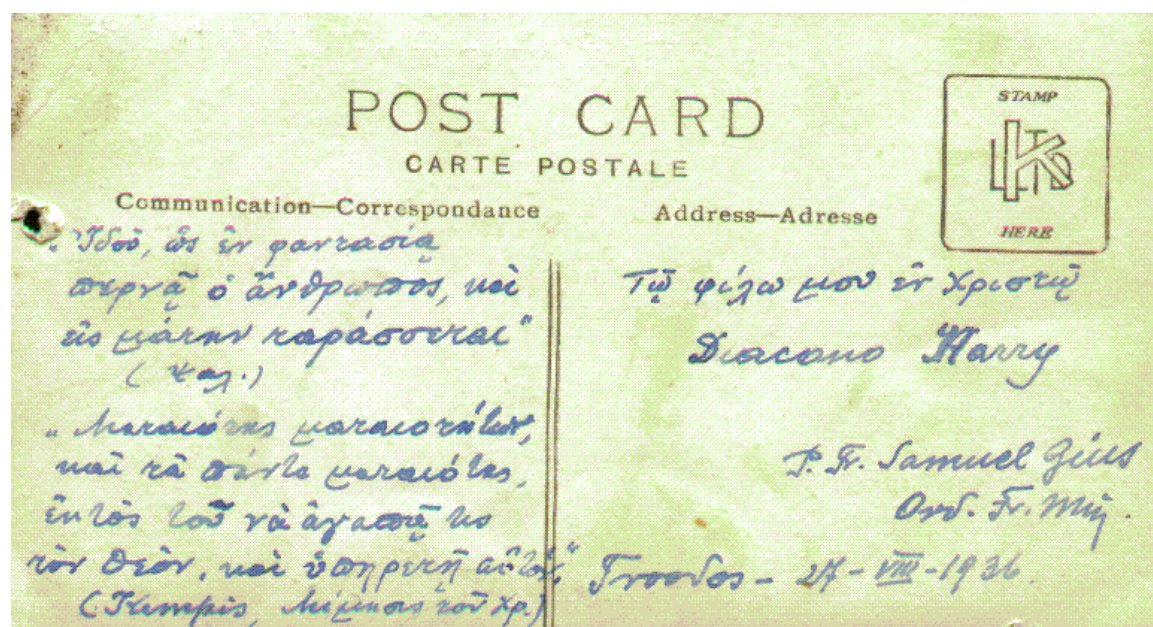 POST CARD
CARTE POSTALE
Communication—Correspondance
Address—Adresse
STAMP
HERE
„Ἰδού, ὡς ἐν φαντασίᾳ
περνᾷ ὁ ἄνθρωπος, καὶ
εἰς μάτην ταράσσεται"
(Ψαλ.)
„Ματαιότης ματαιοτήτων,
καὶ τὰ πάντα ματαιότης,
ἐκτὸς τοῦ νὰ ἀγαπᾷ τις
τὸν Θεόν, καὶ ὑπηρετῇ αὐτόν."
(Kempis, Μίμησις τοῦ Χρ.)
Τῷ φίλῳ μου ἐν Χριστῷ
Diacono Harry
P. Fr. Samuel
Ord. Fr. Min.
Troodos - 27-VIII-1936